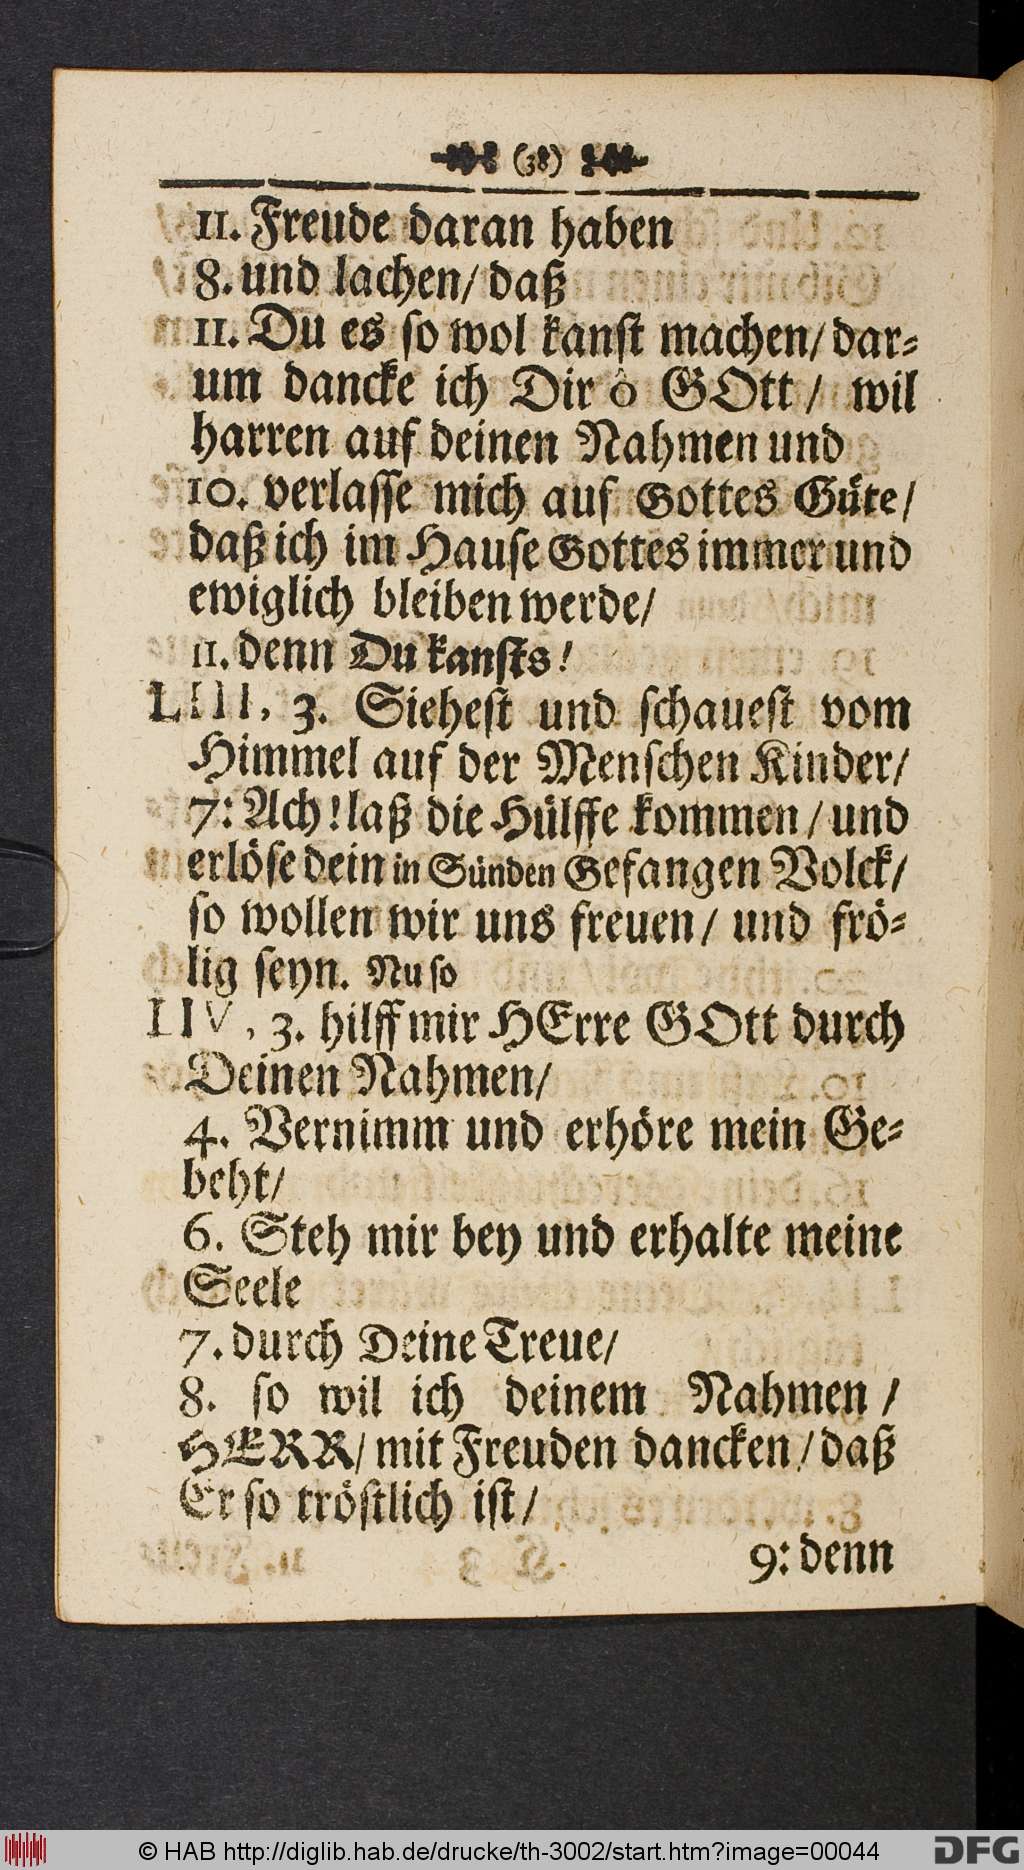 (38)
11. Freude daran haben
8. und lachen/ daß
11. Du es so wol kanst machen/ dar-
um dancke ich Dir ô GOtt/ wil
harren auf deinen Nahmen und
10. verlasse mich auf Gottes Güte/
daß ich im Hause Gottes immer und
ewiglich bleiben werde/
11. denn Du kansts!
LIII, 3. Siehest und schauest vom
Himmel auf der Menschen Kinder/
7: Ach! laß die Hülffe kommen/ und
erlöse dein in Sünden Gefangen Volck/
so wollen wir uns freuen/ und frö-
lig seyn. Nu so
LIV, 3. hilff mir HErre GOtt durch
Deinen Nahmen/
4. Vernimm und erhöre mein Ge-
beht/
6. Steh mir bey und erhalte meine
Seele
7. durch Deine Treue/
8. so wil ich deinem Nahmen/
HERR/ mit Freuden dancken/ daß
Er so tröstlich ist/
9: denn
© HAB http://diglib.hab.de/drucke/th-3002/start.htm?image=00044
DFG